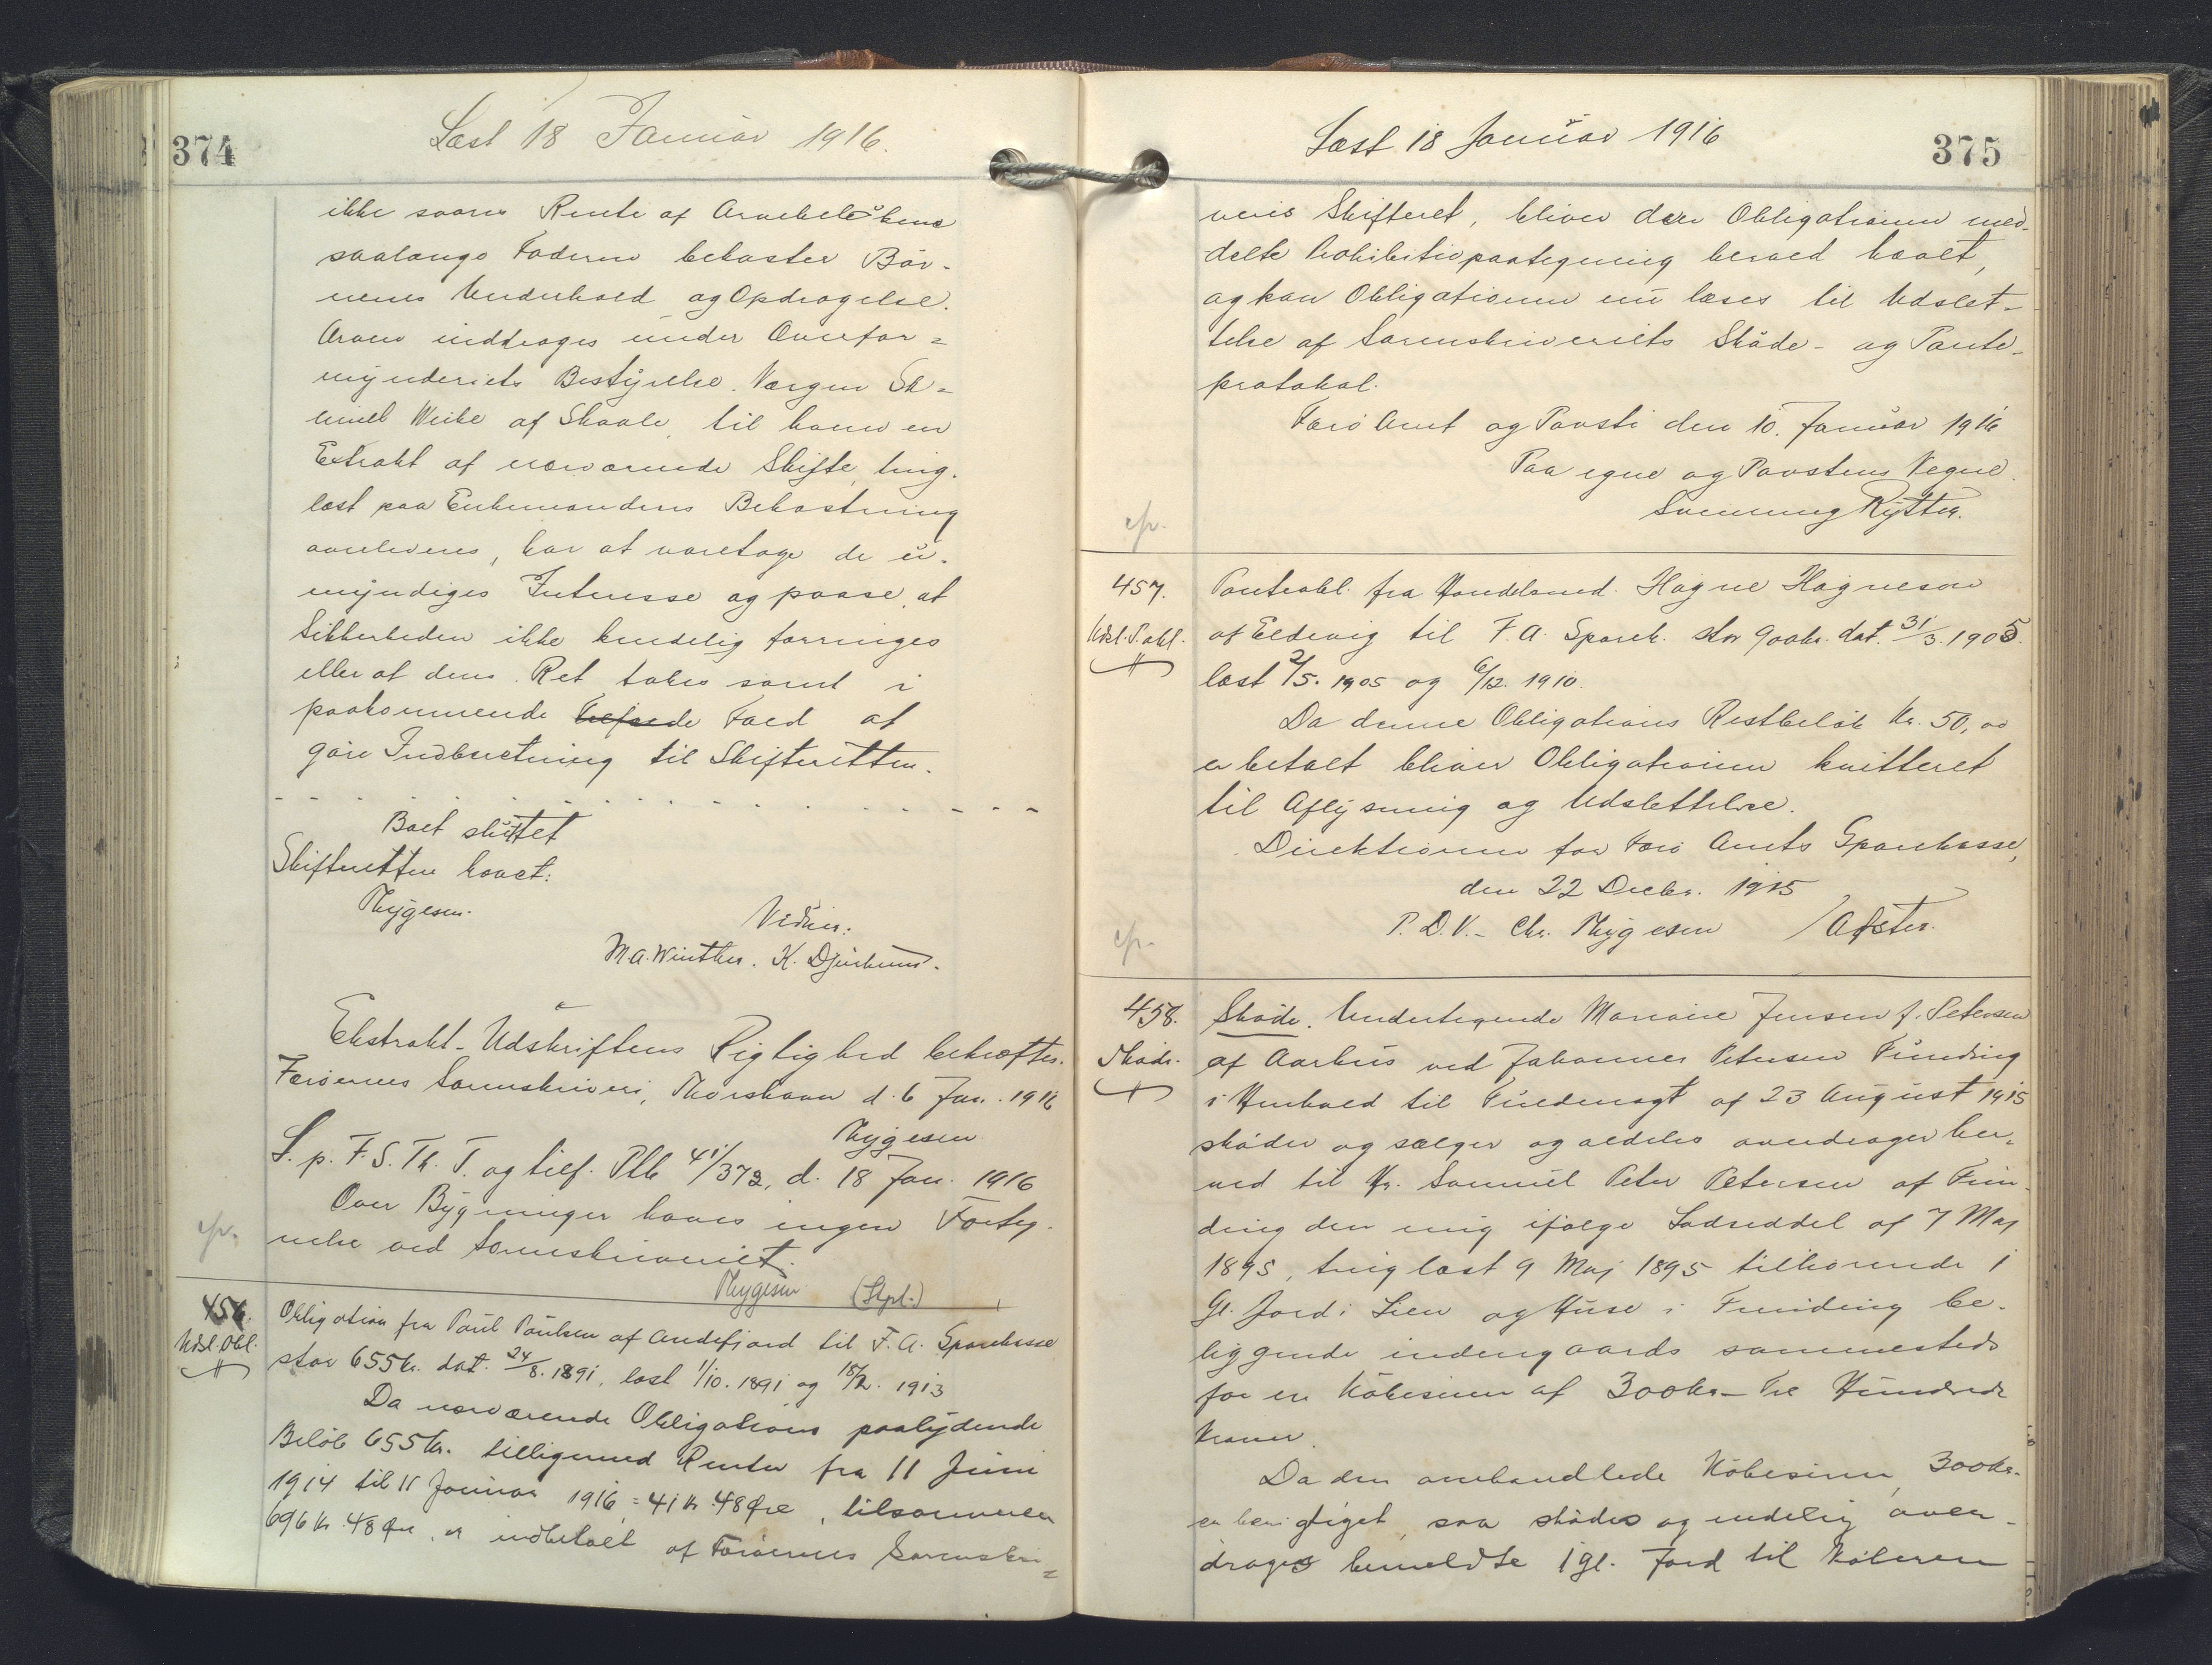 374
Læst 18 Januar 1916.
ikke svares Rente af Arvebeløbene
saalænge Faderen bekoster Bør-
nenes Underhold og Opdragelse.
Arven inddrages under Overfor=
mynderiets Bestyrelse. Værgen
af Skaale, til hvem en
Extrakt af nærværende Skifte, ting-
læst paa Enkemandens Bekostning
avleveres, har at varetage de u-
myndiges Interesse og paase, at
Sikkerheden ikke kendelig forringes
eller at deres Ret tabes samt i
paakommende Fald at
göre Indberetning til Skifteretten.
Boet sluttet
Skifteretten hævet:
Thygesen.
Vidner:
M. A. Winther. K. Djurhuus.
Ekstrakt-Udskriftens Rigtighed bekræftes.
Færøernes Sorenskriveri, Thorshavn d. 6 Jan. 1916
Thygesen
L. p. F. S. Th. T. og tilf. Ptb 41/373, d. 18 Jan. 1916
Over Bygninger haves ingen Forteg-
nelse ved Sorenskriveriet.
Thygesen (Stpl.)
cfr.
456.
Udsl. Obl.
Obligation fra Poul Poulsen af Andefjord til F. A. Sparekasse
stor 655 kr. dat. 24/8. 1891, læst 1/10. 1891 og 18/2. 1913
Da nærværende Obligations paalydende
Beløb 655 kr. tilligemed Renter fra 11 Juni
1914 til 11 Januar 1916 = 41 kr. 48 Øre, tilsammen
696 kr. 48 Øre, er indbetalt af Færøernes Sorenskri=
Læst 18 Januar 1916
375
veris Skifteret, bliver den Obligationen med-
delte Prohibitivpaategning herved hævet,
og kan Obligationen nu læses til Udslet-
telse af Sorenskriveriets Skøde- og Pante-
protokol.
Færø Amt og Provsti den 10. Januar 1916
Paa egne og Provstens Vegne.
Svenning Rytter.
cfr.
457.
Udsl. P. obl.
Panteobl. fra Handelsmd. Hagne Hagnesen
af Eldevig til F. A. Sparek. stor 900 kr. dat. 31/3. 1905.
læst 2/5. 1905 og 6/12. 1910.
Da denne Obligations Restbeløb Kr. 50,00
er betalt bliver Obligationen kvitteret
til Aflysning og Udslettelse.
Direktionen for Færø Amts Sparekasse,
den 22 Decbr. 1915
P. D. V. - Chr. Thygesen /
cfr.
458.
Skøde.
Skøde. Undertegnede Mariane Jensen f. Petersen
af Aarhus ved Johannes Petersen Funding
i Henhold til Fuldmagt af 23 August 1915
skøder og sælger og aldeles overdrager her-
ved til Hr. Samuel Peter Petersen af Fun-
ding den mig ifølge Lodseddel af 7 Maj
1895, tinglæst 9 Maj 1895 tilhørende 1
Gl. Jord i Lien og Huse i Funding be-
liggende indengaards sammesteds
for en Købesum af 300 kr. - Tre Hundrede
Kroner.
Da den omhandlede Købesum, 300 kr.
er berigtiget, saa skødes og endelig over-
drages bemeldte 1 gl. Jord til Køberen